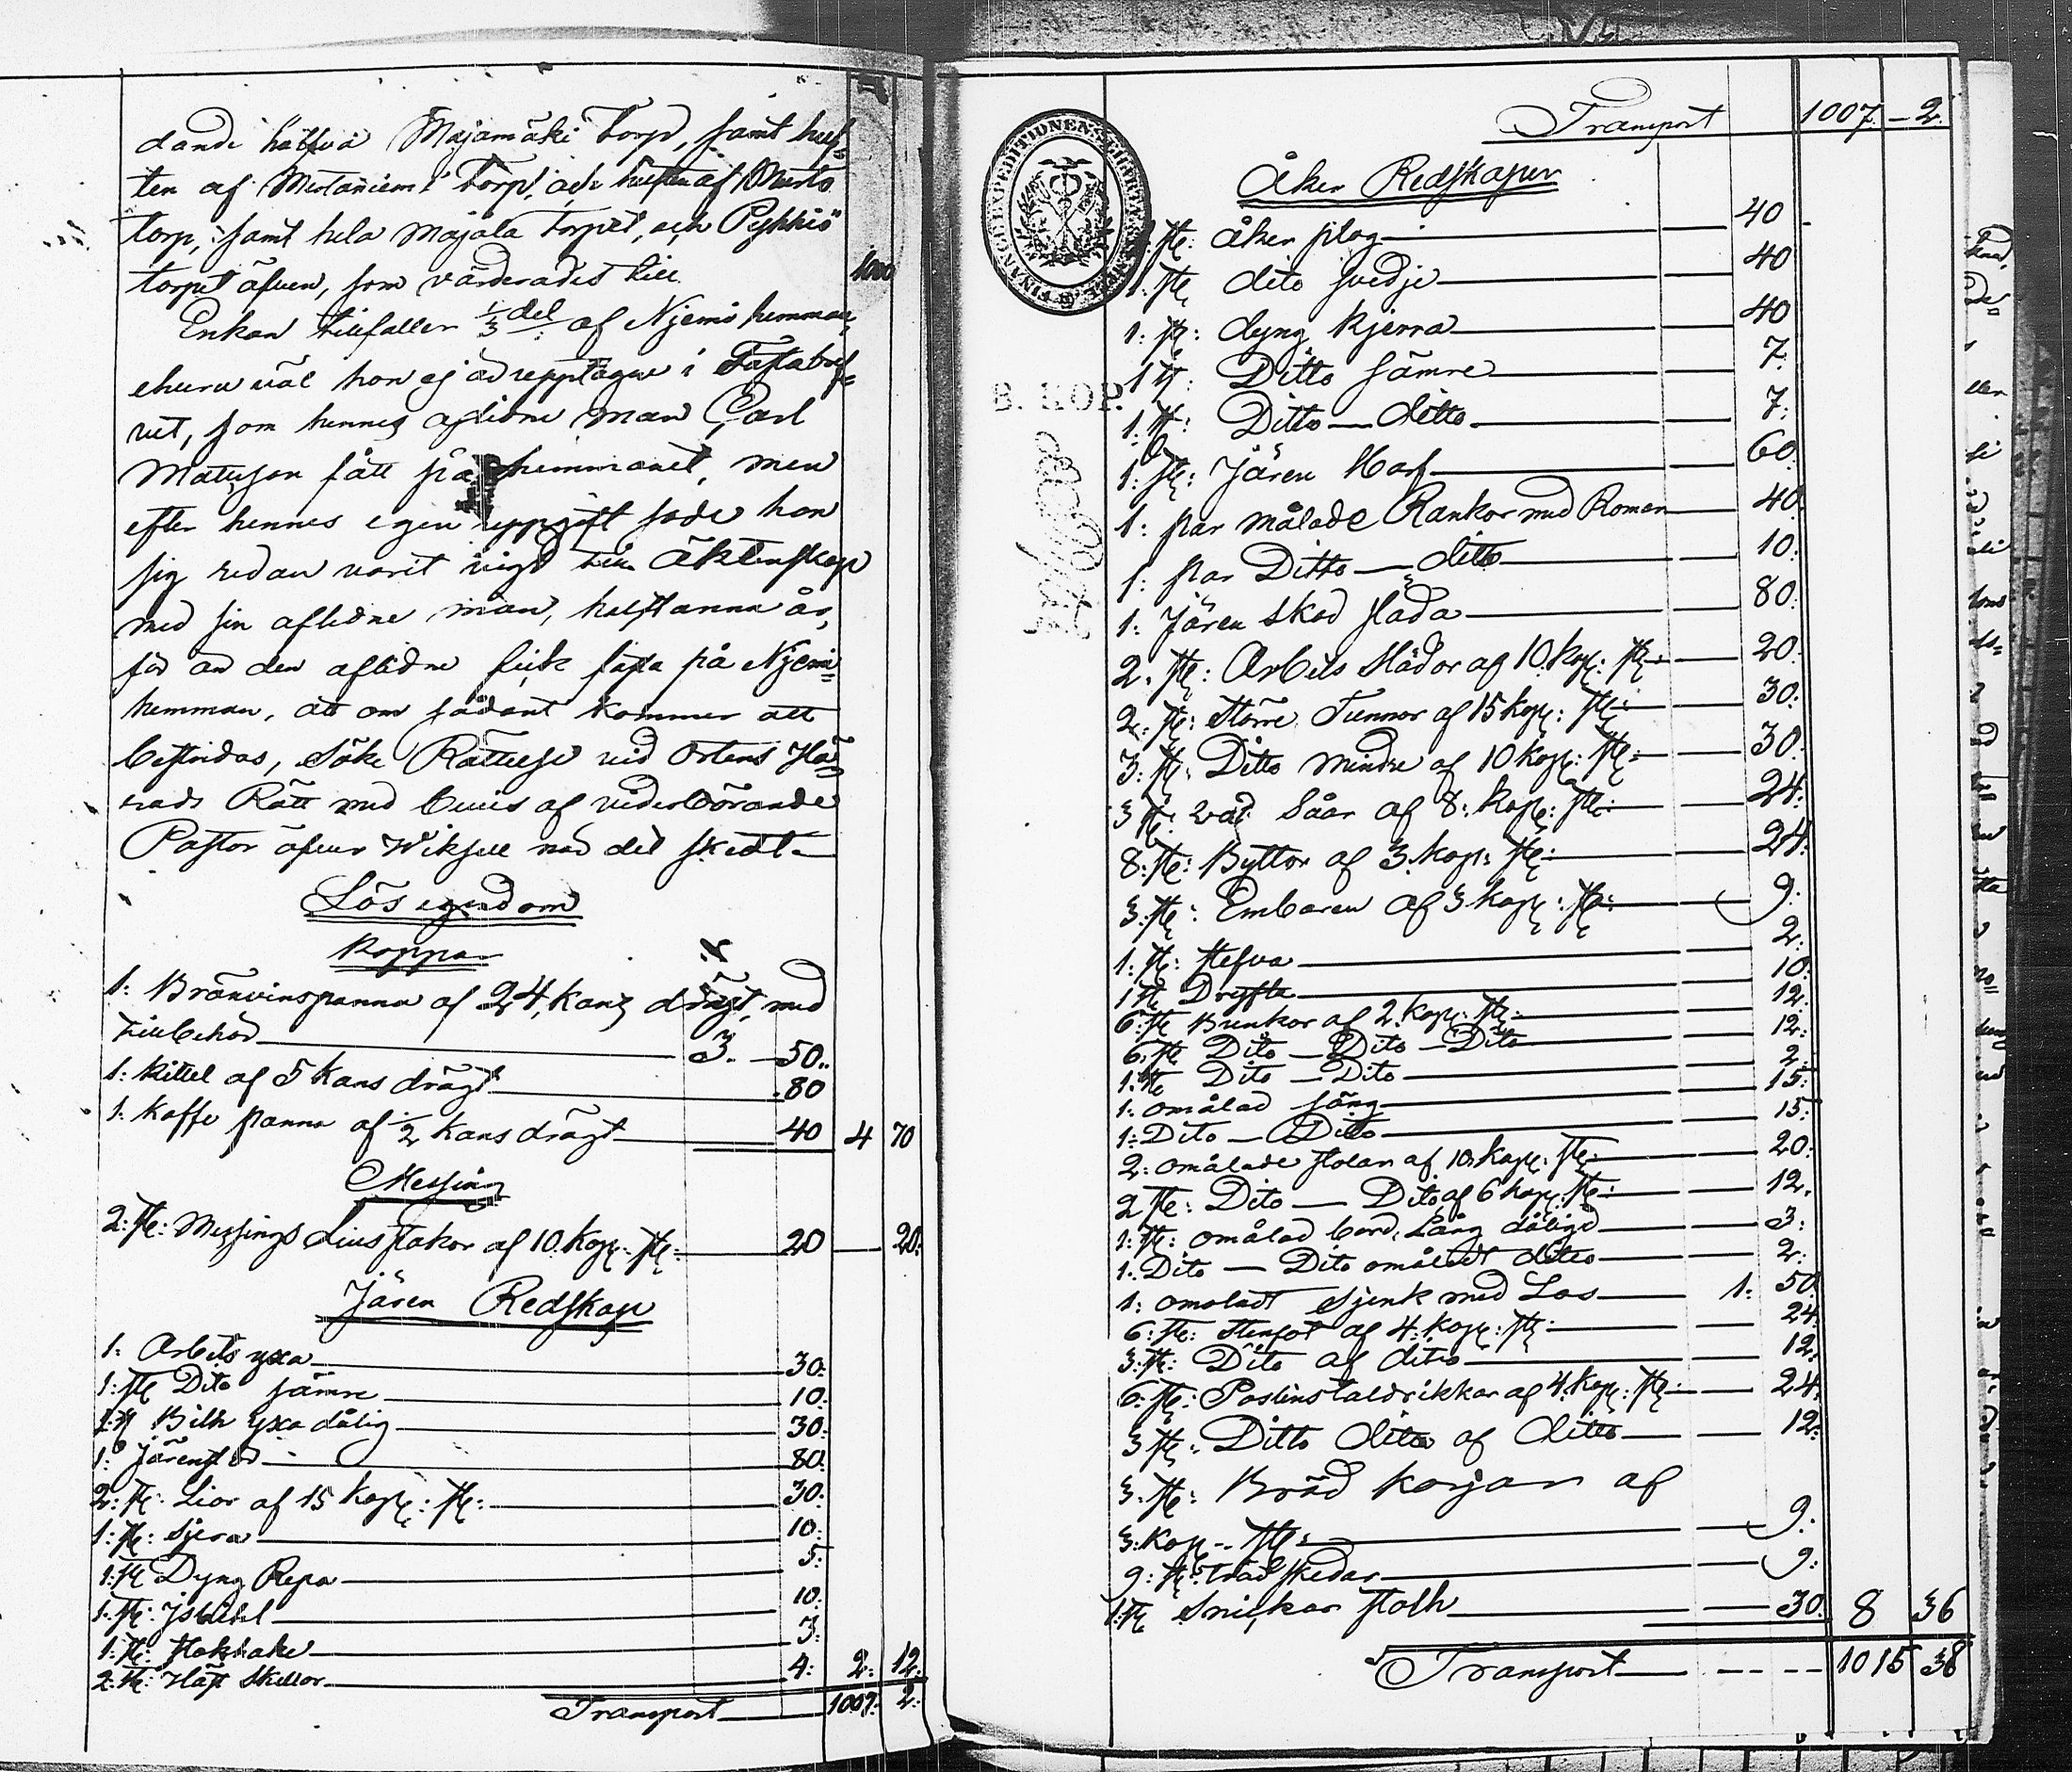 dande hälfva Majamäki Torp, samt helf=
ten af Torp, och helften af
torp, samt hela Majala torpet, och Pyhkiö
torpet äfven, som värderades till 1000
Enkan tillfaller 1/3 del af Njemi hemman,
ehuru väl hon ej är upptagen i Fastabref=
vet, som hennes aflidne man Carl
Matsson fått på hemmanet, men
efter hennes egen uppgift sade hon
sig redan varit vigd till Äktenskap
med sin aflidne man, helftanna år,
för än den aflidne fick fasta på Njemi
hemman, att om sådant kommer att
bestridas, söke Rättelse vid Ortens Hä=
rads Rätt med bevis af vederbörande
Pastor öfver Wiksell när det skedt
Lös egendom
Koppar
1: Bränvinspanna af 24, kans drägt, med
tillbehör 3. 50.
1: kittel af 5 Kans drägt 80
1: Kaffe panna af 1/2 Kans drägt 40 4 70
Messing
2: st: Messings Liusstakar af 10. Kop: st: 20 20:
Jären Redskap
1: Arbets yxa 30:
1: st Dito sämre 10:
1: st Bilh yxa dålig 30:
1: Järenstör 80:
2: st: Lior af 15 Kop: st: 30:
1: st: Sjera 10:
1: st Dyng Repa 5:
1: st: Jsbihl 10:
1: st: 3:
2: st: Häst Skellor 4: 2: 12:
Transport 1007: 2:
Transport 1007. – 2.
FINANCE EXPEDITIONENS CHARTÆ
B. KOP.
Åker Redskaper
1: st: Åker plog 40
1: st dito svedje 40
1: st: dyng kjerra 40
1 st: Ditto sämre 7.
1: st: Ditto – ditto 7.
1: st: Jären Harf 60.
1: par målade Rankor med Roman 40.
1: par Ditto – ditto 10:
1: Jären skod släda 80:
2. st: Arbets Slädor af 10. kop: st: 20:
2: st: Större Tunnor af 15 kop: st: 30:
3: st: Ditto mindre af 10 kop: st: 30:
3 st: Såar af 8: kop: st: 24:
8: st: Byttor af 3. kop: st: 24:
3: st: Embaren af 3 kop: st: 9.
1: st: stefva 2.
1 st Dryfta 10:
6: st Bunkor af 2. kop: st: 12:
6: st Dito – Dito – Dito 12:
1: st Dito – Dito 2:
1: omålad säng 15:
1: Dito – Dito 15:
2: omålade stolar af 10 Kop: st: 20:
2 st: Dito – Dito af 6 kop: st: 12.
1: st: omålad bord, Lång dåligd 3:
1: Dito – Dito omåladt ditto 2:
1: omåladt sjenk med Lås 1: 50.
6: st: Stenfat af 4: kop: st: 24:
3: st: Dito af dito 12.
6: st: Poslins taldrikkar af 4. kop: st: 24.
3 st: Ditto ditto af ditto 12:
3: st: Bröd korjar af
3: kop – st: 9:
9: st: träd skedar 9:
1: st Snickar stolh 30: 8 36
Transport 1015 38